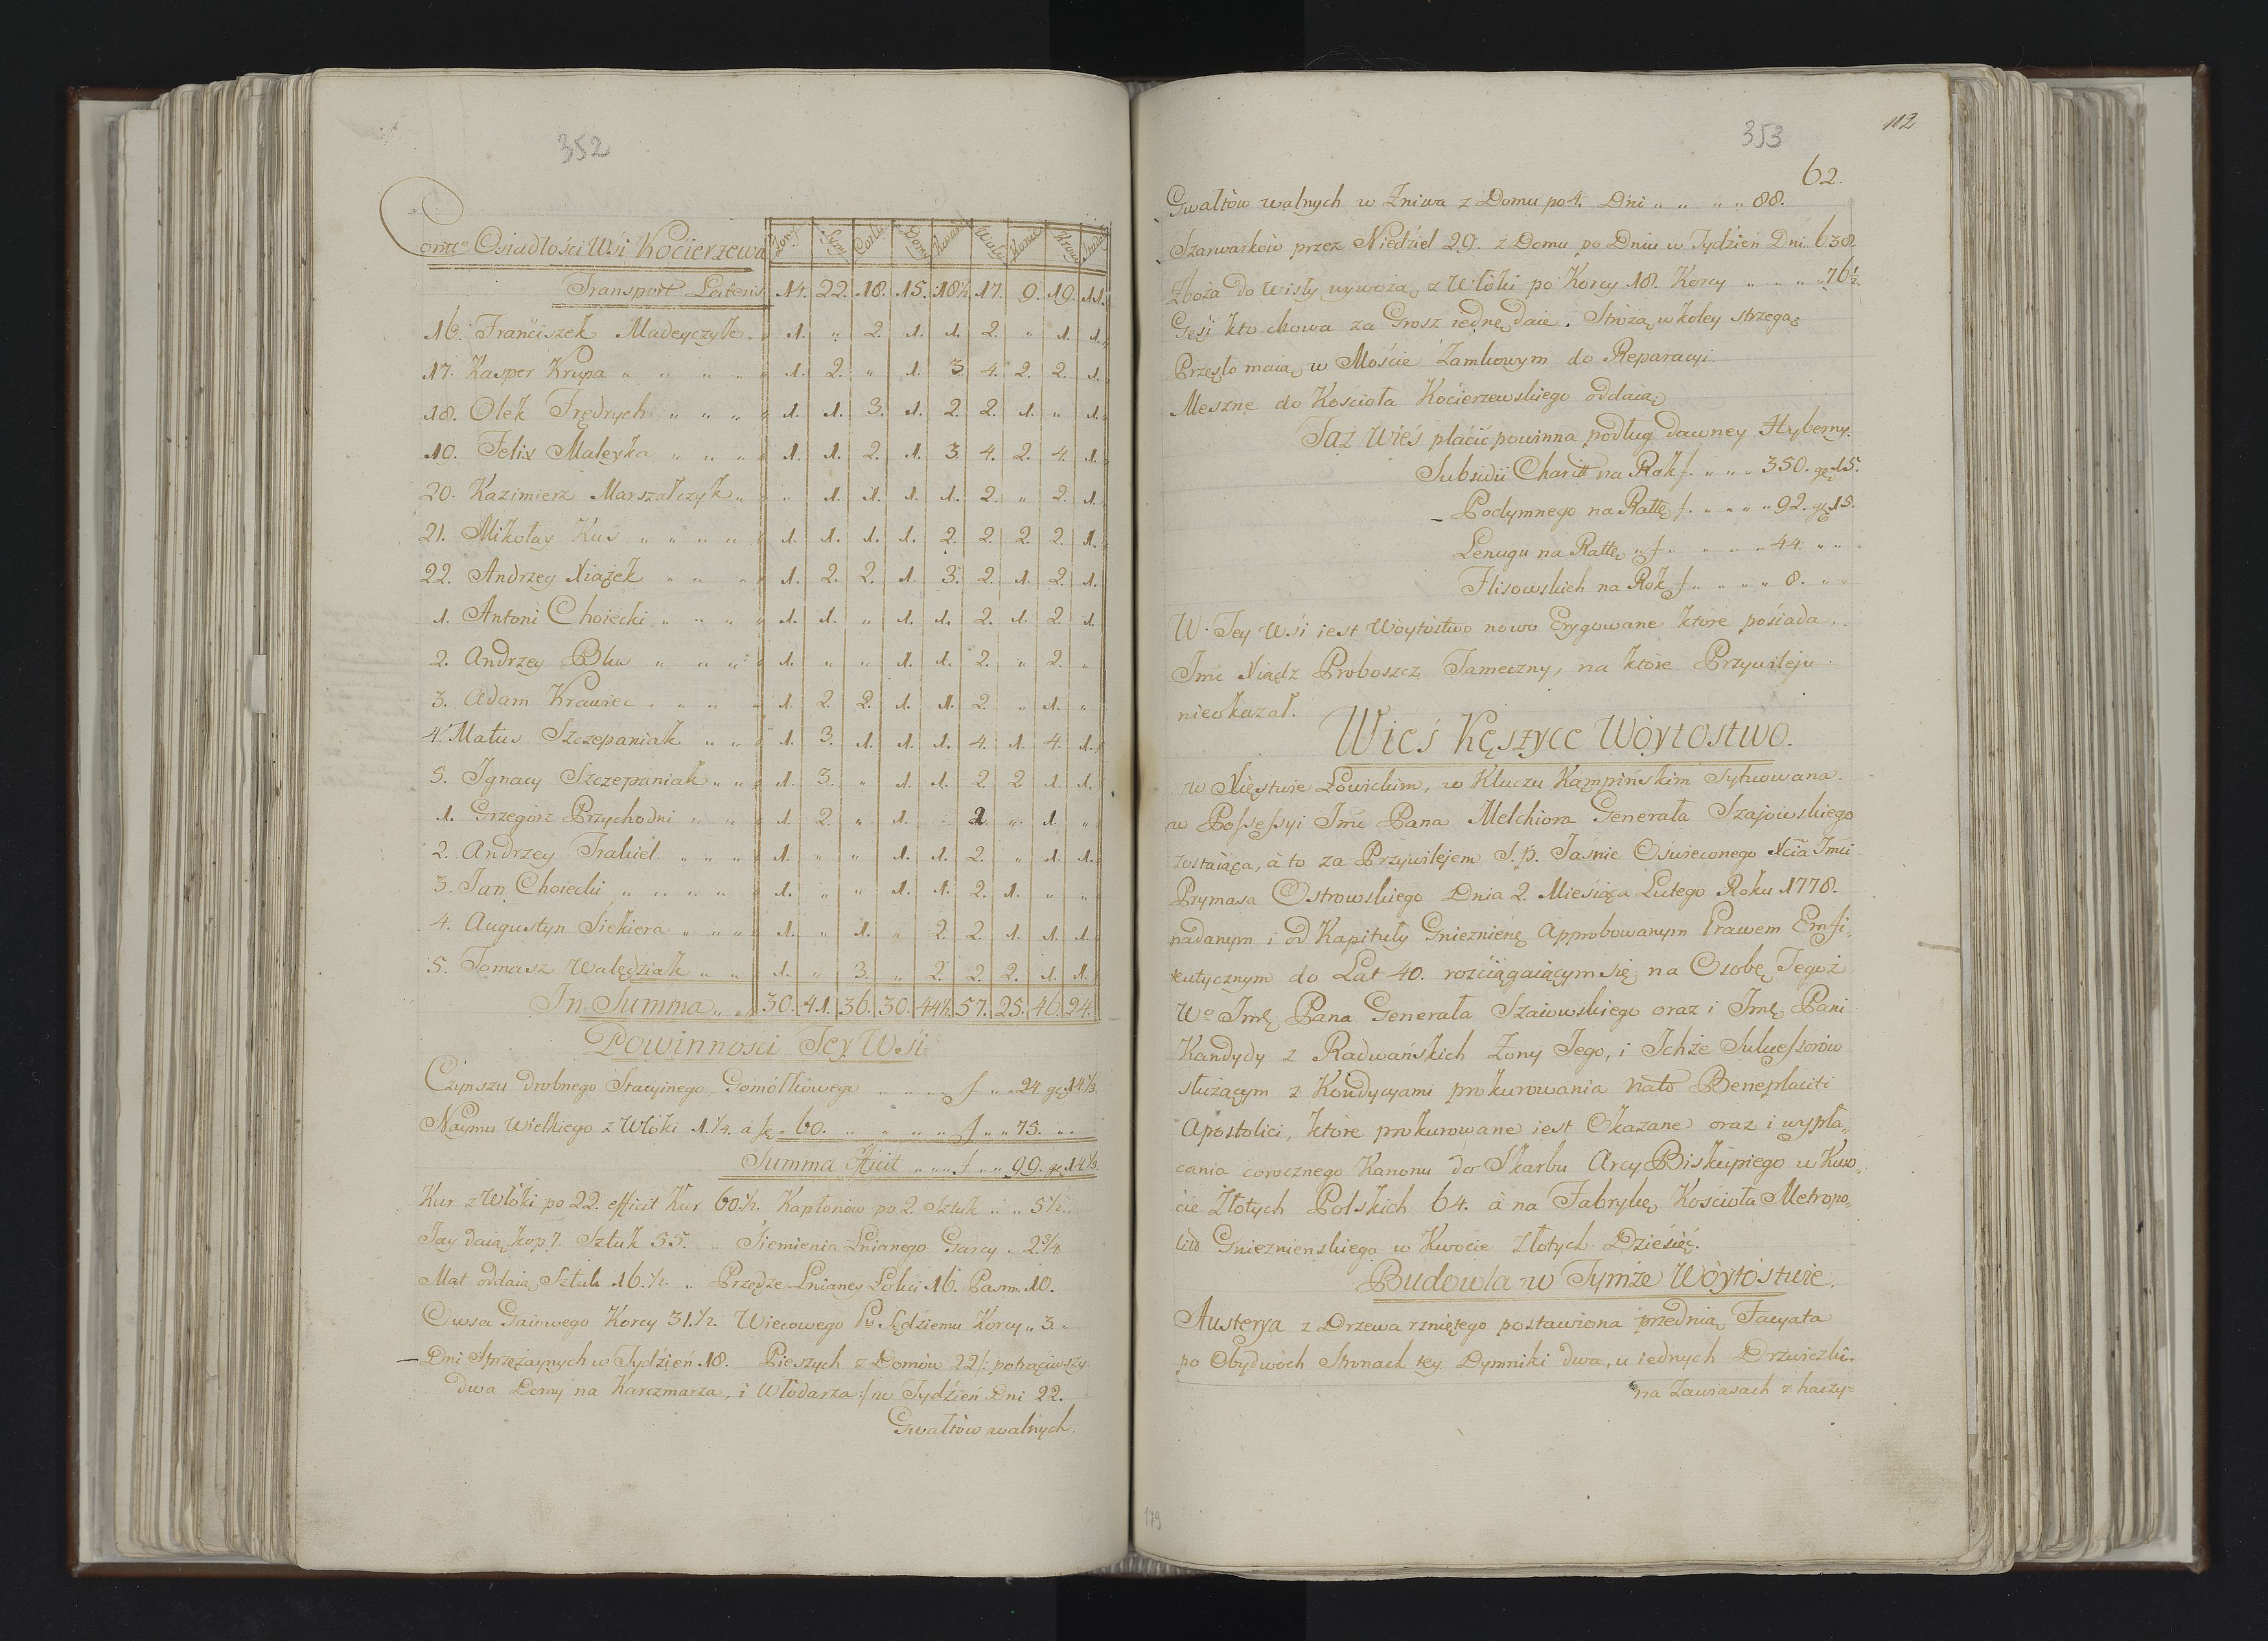 352
Osiadłości Wsi Kocierzewa Żony Syny Corki Domy Woły Konie Krowy
Transport Lateris 14. 22. 18. 15. 18½ 17. 9. 19. 11.
16. Franciszek Madeyczyk 1. „ 2. 1. 1. 2. „ 1. 1.
17. Kasper Krupa 1. 2. „ 1. 3. 4. 2. 2. 1.
18. Olek Frędrych 1. 1. 3. 1. 2. 2. 1. „ 1.
19. Felix Maleyka 1. 1. 2. 1. 3. 4. 2. 4. 1.
20. Kazimierz Marszałczyk „ 1. 1. 1. 1. 2. „ 2. 1.
21. Mikołay Kuś 1. 1. 1. 1. 2. 2. 2. 2. 1.
22. Andrzey Xiążek 1. 2. 2. 1. 3. 2. 1. 2. 1.
1. Antoni Choiecki 1. 1. „ 1. 1. 2. 1. 2. 1.
2. Andrzey 1. „ „ 1. 1. 2. „ 2. „
3. Adam Krawiec 1. 2. 2. 1. 1. 2. „ 1. „
4. Matus Szczepaniak 1. 3. 1. 1. 1. 4. 1. 4. 1.
5. Ignacy Szczepaniak 1. 3. „ 1. 1. 2. 2. 1. 1.
1. Grzegórz Przychodni 1. 2. „ 1. „ „ 1. „
2. Andrzey 1. „ „ 1. 1. 2. „ 1. 1.
3. Jan Choiecki 1. „ „ 1. 1. 2. 1. „ „
4. Augustyn Siekiera 1. „ 1. „ 2. 2. 1. 1. 1.
5. Tomasz Walędziak 1. „ 3. „ 2. 2. 2. 1. 1.
In Summa 30. 41. 36. 30. 44½ 57. 25. 46. 24.
Powinności Tey Wsi
Czynszu drobnego Stacyinego, Gomółkowego f 24. gr 14⅓.
Naymu Wielkiego z Włóki 1¼. a 60. f 75.
Summa efficit f 99. gr 14⅓.
Kur z Włóki po 22. efficit Kur 60½. Kapłonów po 2. Sztuk 5½.
Jay daią kop 7. Sztuk 55. Siemienia Lnianego Garcy
Mat oddaią Sztuk 16½. Przędze Lnianey Łokci 16. Pasm. 10.
Owsa Gaiowego Korcy 31½. Wiecowego Sędziemu Korcy 3.
— Dni Sprzężaynych w Tydzień 18. Pieszych z Domów 22/: potrąciwszy
dwa Domy na Karczmarza, i Włodarza :/ w Tydzień Dni 22.
Gwałtów walnych.
353
112
62.
Gwałtów walnych w Żniwa z Domu po 4. Dni 88.
Szarwarków przez Niedziel 29. z Domu po Dniu w Tydzień Dni 638.
Zboża do Wisły wywożą z Włóki po Korcy 18. Korcy 76½.
Gęsi kto chowa za Grosz iednę daie. Stróżą w koley strzegą.
Przęsło maią w Moście Zamkowym do Reparacyi.
Meszne do Kościoła Kocierzewskiego oddaią
Taż Wieś płacić powinna podług dawney Hyberny.
Subsidii Charitt na Rok f. 350. gr 15.
— Podymnego na Rattę f. 92. gr 15.
Lenugu na Rattę f 44.
Flisowskich na Rok f 8.
W Tey Wsi iest Woytostwo nowo Erygowane które posiada
Jmć Xiądz Proboszcz Tameczny, na które Przywileju
nieokazał.
Wieś Kęszyce Wóytostwo.
w Xięstwie Łowickim, w Kluczu Kąmpińskim Sytuowana.
w Possessyi Jmć Pana Melchiora Generała Szajowskiego
zostaiąca, à to za Przywilejem S. p. Jaśnie Oświeconego Xcia Jmci
Prymasa Ostrowskiego Dnia 2. Miesiąca Lutego Roku 1778.
nadanym i od Kapituły Gnieznienę Approbowanym Prawem Emfi„
teutycznym do Lat 40. rozciągaiącym się na Osobę Tegoż
We Jmę Pana Generała Szaiowskiego oraz i Jmę Pani
Kandydy z Radwańskich Zony Jego, i Ichże Sukcessorów
służącym z Kondycyami prokurowania nato Beneplaciti
Apostolici, które prokurowane iest Okazane oraz i wypła„
cania corocznego Kanonu do Skarbu Arcy Biskupiego w Kwo„
cie Złotych Polskich 64. à na Fabrykę Kościoła Metropo„
liti Gnieznienskiego w Kwocie Złotych Dziesięć.
Budowla w Tymże Wóytóstwie.
Austerya z Drzewa rzniętego postawiona przednią Facyata
po Obydwóch Stronach tey Dymniki dwa, u iednych Drzwiczki
na Zawiasach z haszy=
179